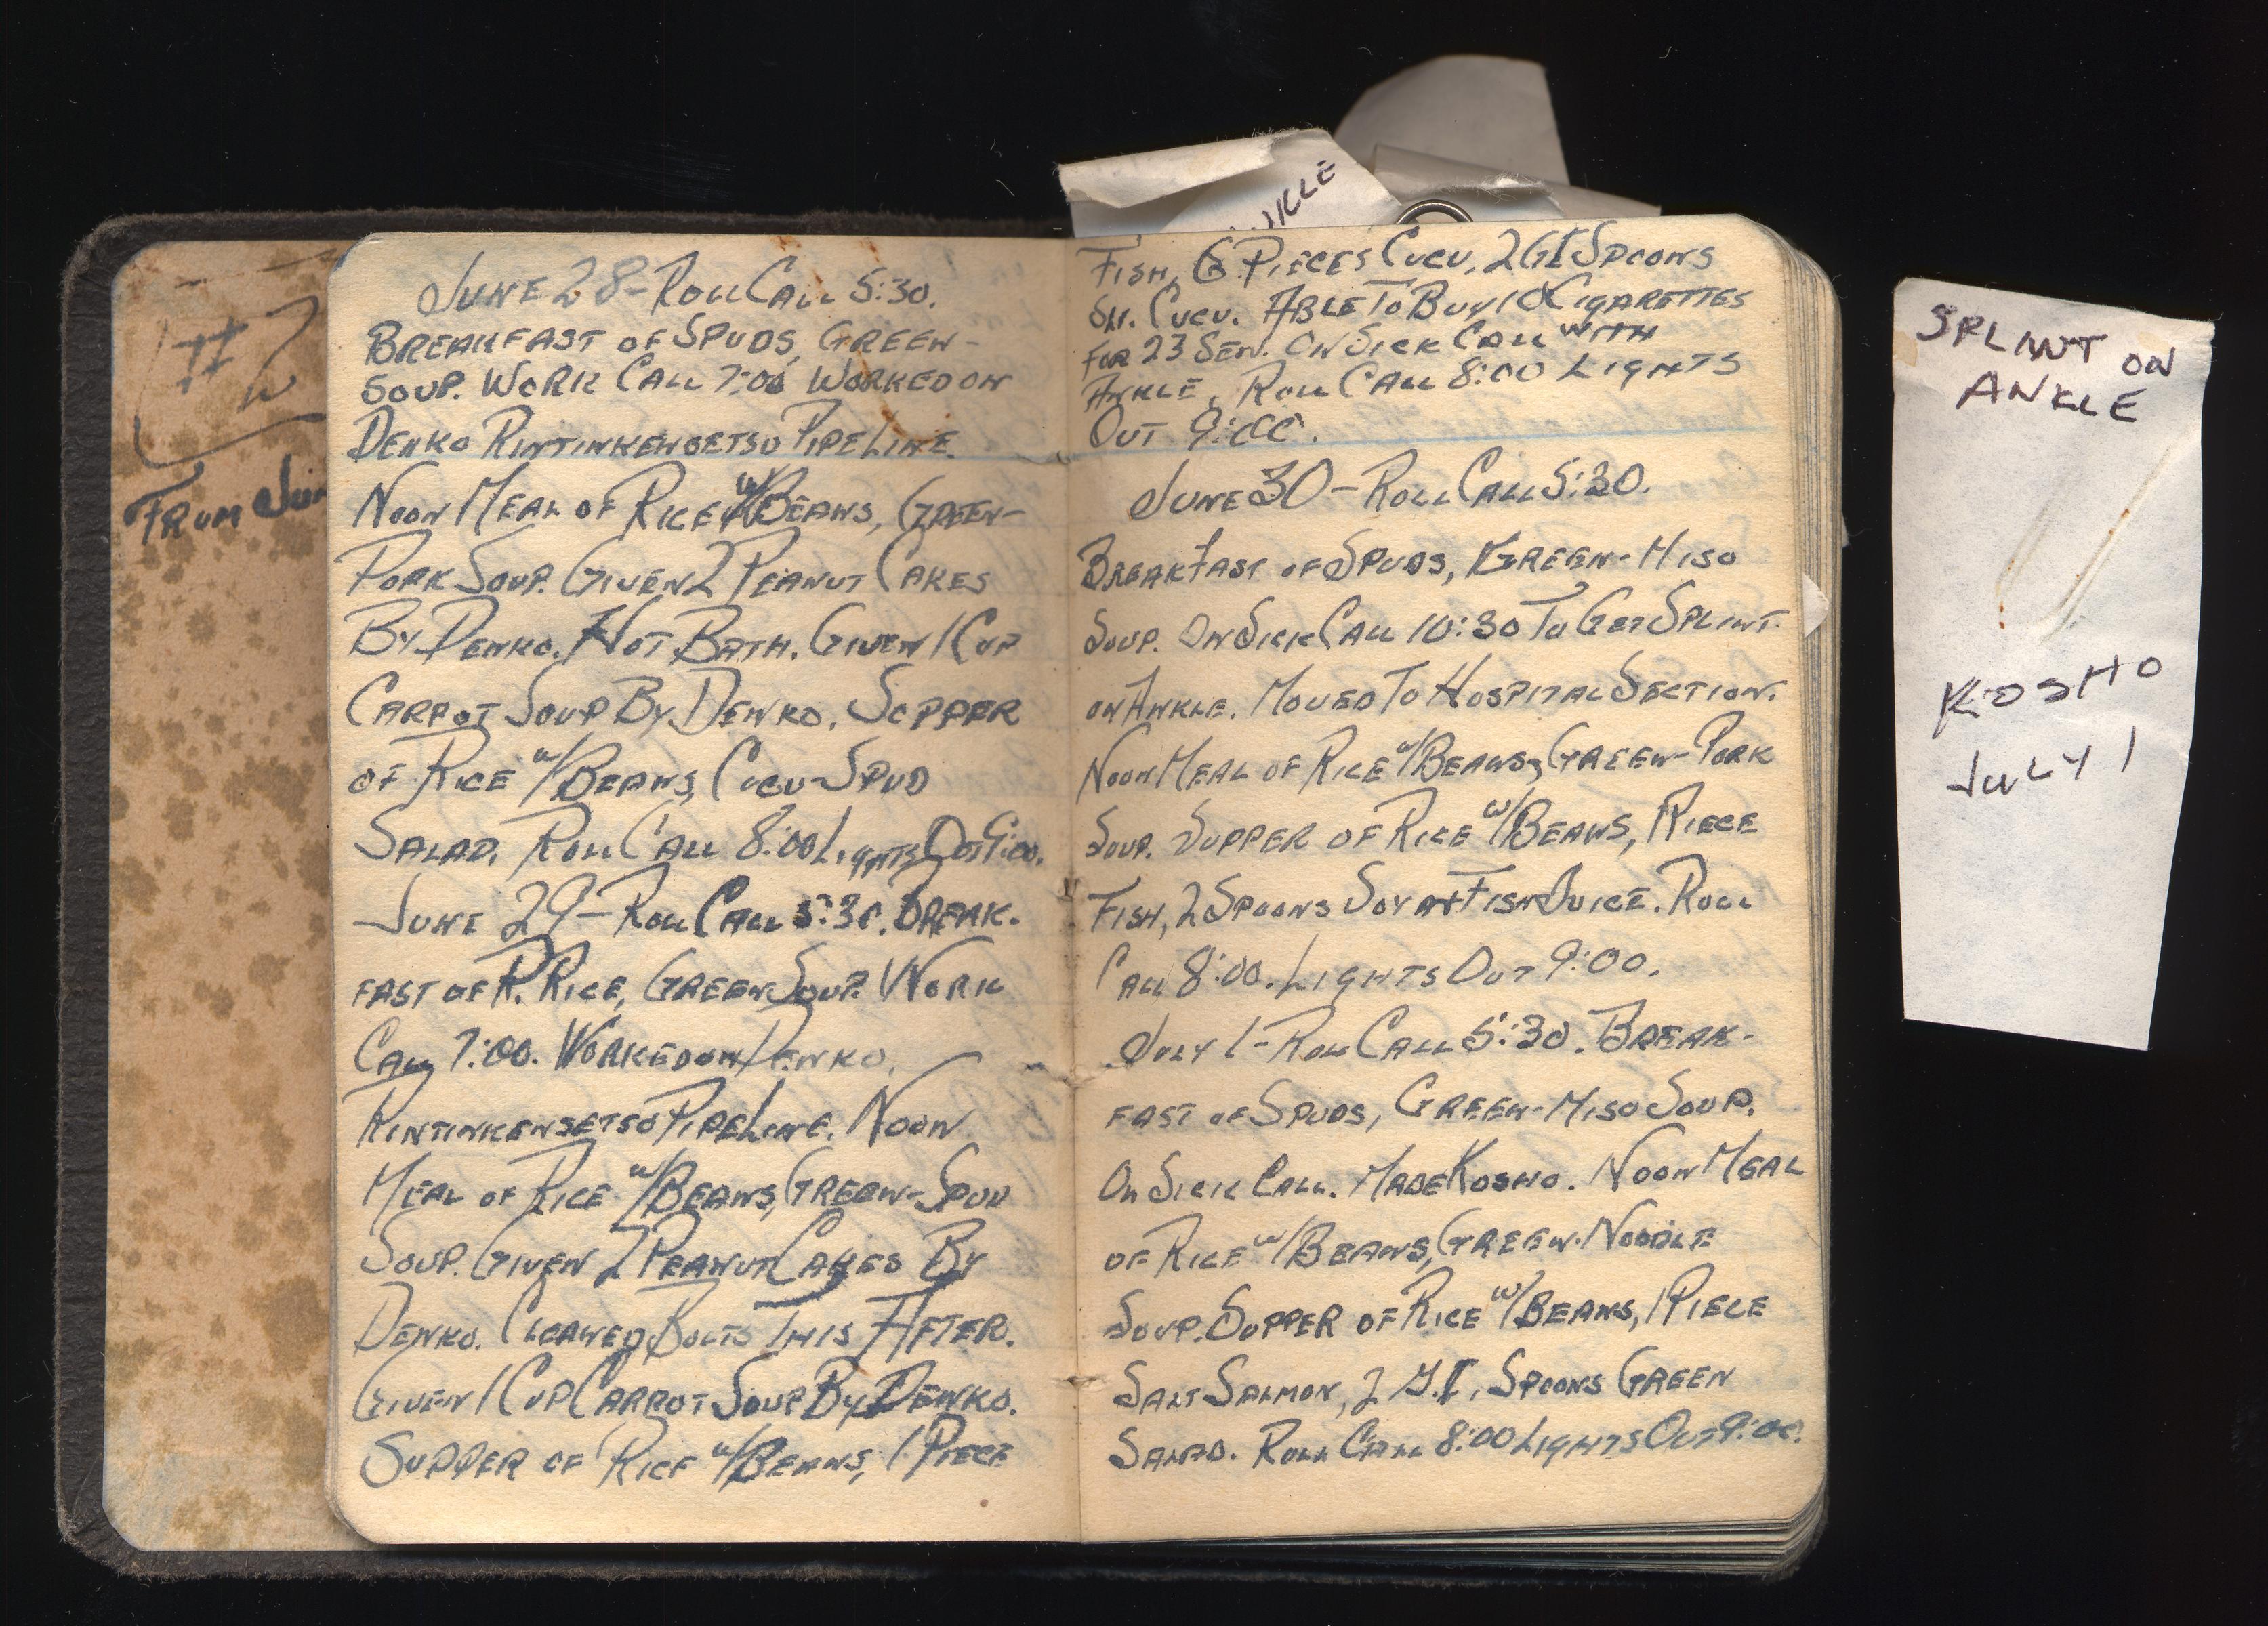 #2
FROM JUN
JUNE 28-ROLL CALL 5:30.
BREAKFAST OF SPUDS, GREEN-
SOUP. WORK CALL 7:00 WORKED ON
DENKO RINTINKENSETSU PIPELINE.
NOON MEAL OF RICE W/BEANS, GREEN-
PORK SOUP. GIVEN 2 PEANUT CAKES
BY DENKO. HOT BATH. GIVEN 1 CUP
CARROT SOUP BY DENKO. SUPPER
OF RICE W/BEANS, CUCU-SPUD
SALAD. ROLL CALL 8:00 LIGHTS OUT 9:00.
JUNE 29-ROLL CALL 5:30. BREAK-
FAST OF P. RICE, GREEN SOUP. WORK
CALL 7:00. WORKED ON DENKO,
RINTINKENSETSU PIPELINE. NOON
MEAL OF RICE W/BEANS, GREEN-SPUD
SOUP. GIVEN 2 PEANUT CAKES BY
DENKO. CLEANED BOLTS THIS AFTER.
GIVEN 1 CUP CARROT SOUP BY DENKO.
SUPPER OF RICE W/BEANS, 1 PIECE
NKLE
FISH, 6 PIECES CUCU, 2 GI SPOONS
CUCU. ABLE TO BUY 10 CIGARETTES
FOR 23 SEN. ON SICK CALL WITH
ANKLE. ROLL CALL 8:00 LIGHTS
OUT 9:00.
JUNE 30-ROLL CALL 5:30.
BREAKFAST OF SPUDS, GREEN-MISO
SOUP. ON SICK CALL 10:30 TO GET SPLINT
ON ANKLE. MOVED TO HOSPITAL SECTION.
NOON MEAL OF RICE W/BEANS, GREEN-PORK
SOUP. SUPPER OF RICE W/BEANS, 1 PIECE
FISH, 2 SPOONS SOY FISH JUICE. ROLL
CALL 8:00. LIGHTS OUT 9:00.
JULY 1-ROLL CALL 5:30. BREAK-
FAST OF SPUDS, GREEN-MISO SOUP.
ON SICK CALL. MADE KOSHO. NOON MEAL
OF RICE W/BEANS, GREEN-NOODLE
SOUP. SUPPER OF RICE W/BEANS, 1 PIECE
SALT SALMON, 2 G.I. SPOONS GREEN
SALAD. ROLL CALL 8:00 LIGHTS OUT 9:00.
SPLINT ON
ANKLE
KOSHO
JULY 1